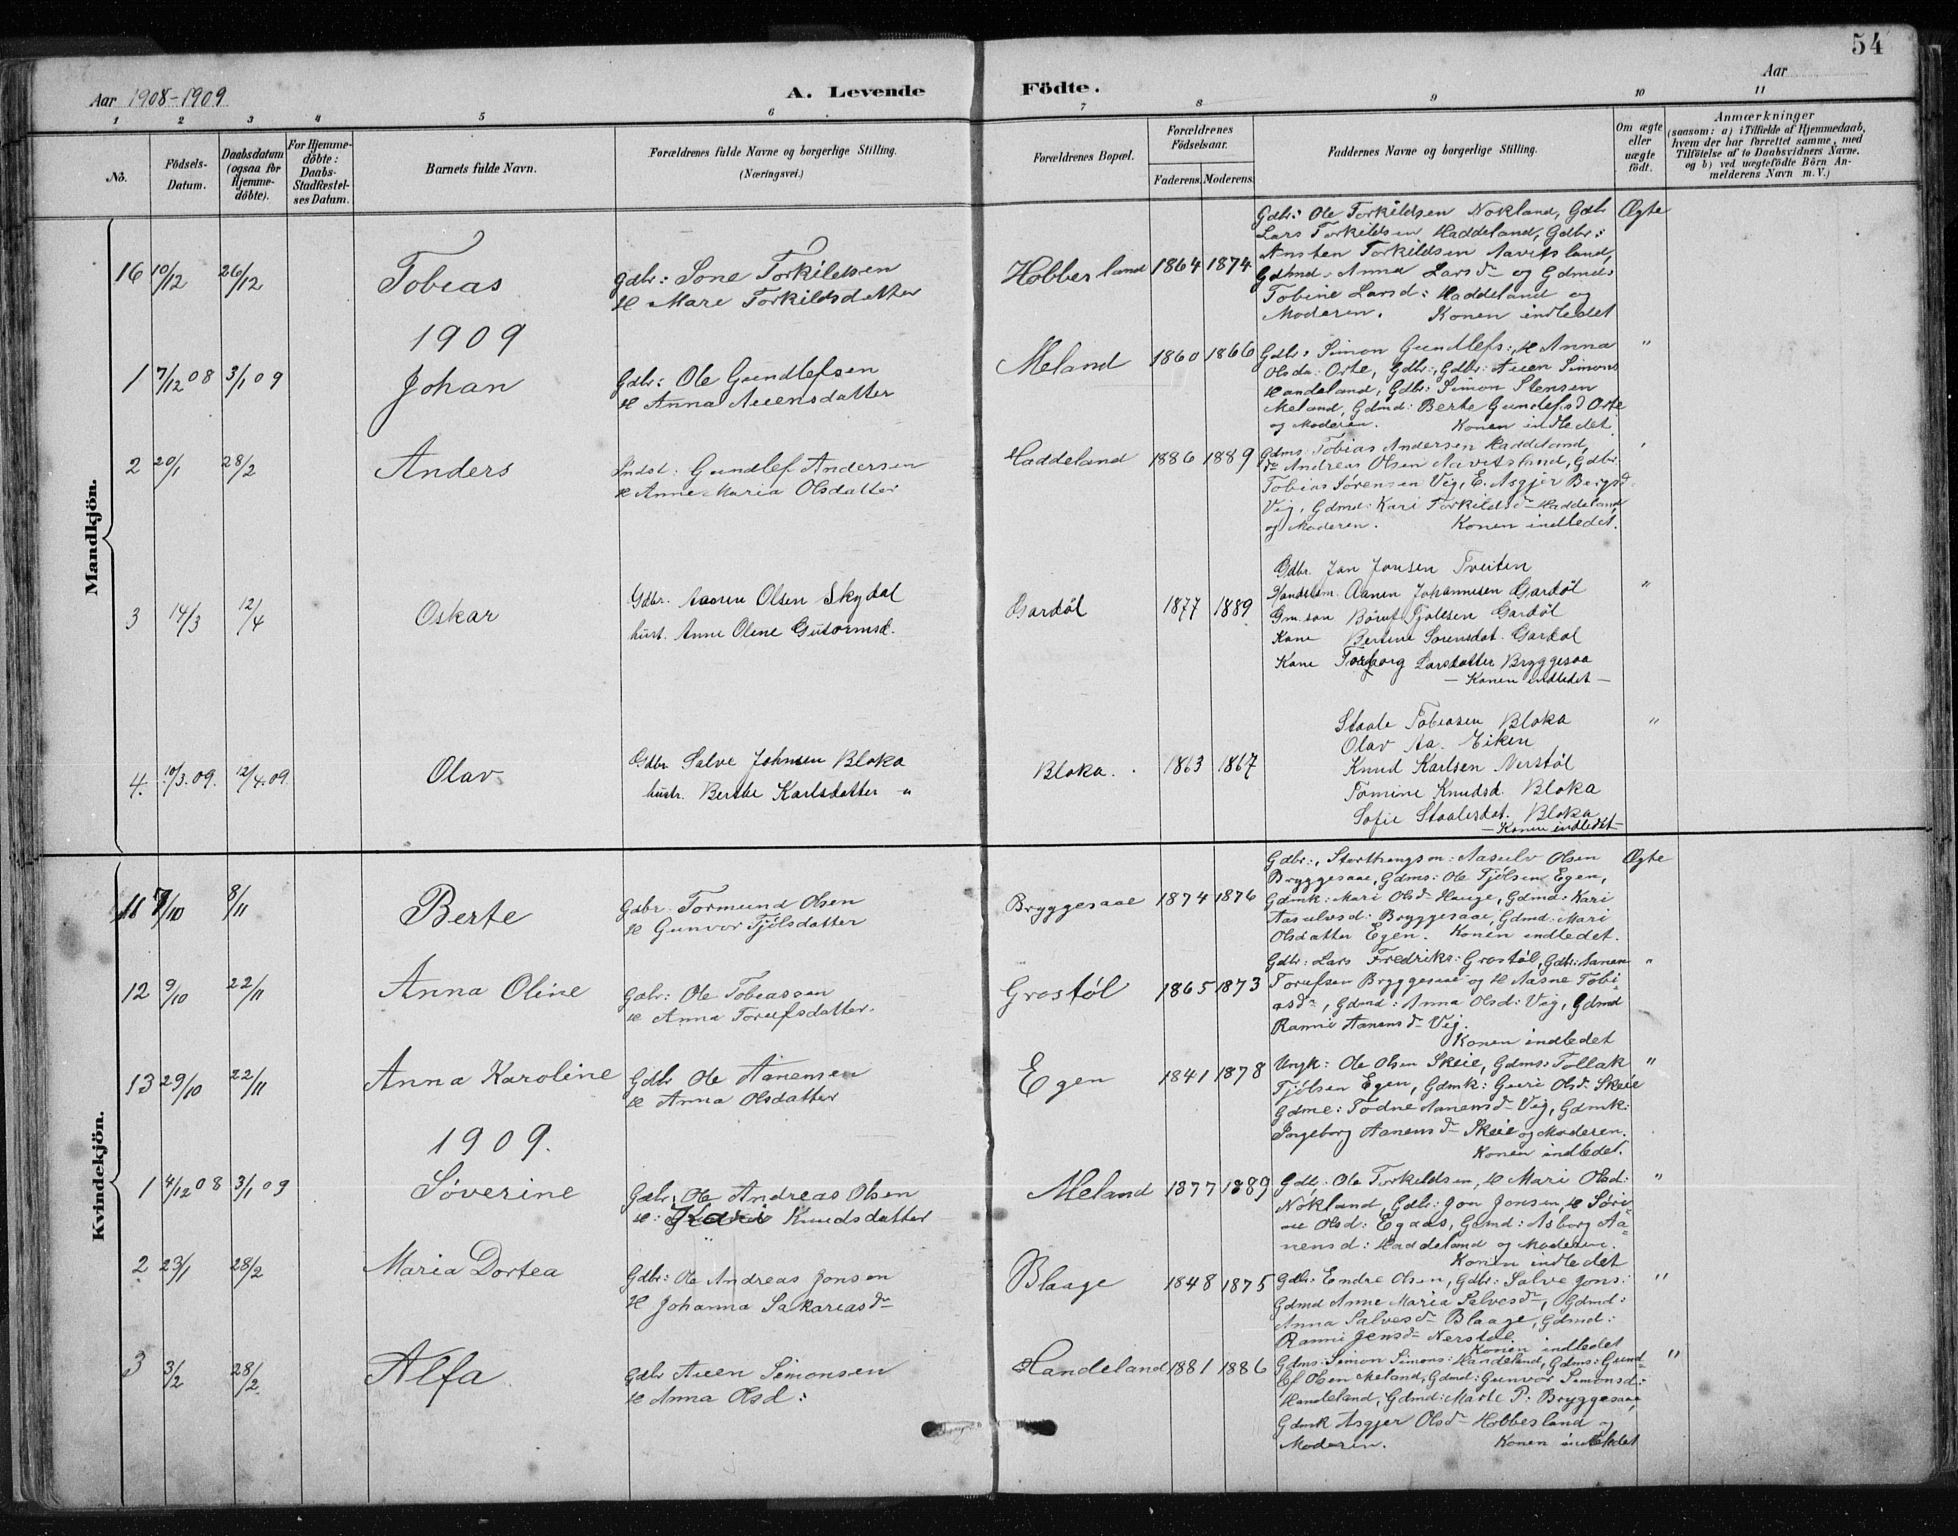 54
Aar 1908-1909
A. Levende
Födte.
Aar
1 2 3 4 5 6 7 8 9 10 11
No.
Födsels-
Datum.
Daabsdatum
(ogsaa for
Hjemme-
döbte).
For Hjemme-
döbte:
Daabs-
Stadfæstel-
ses Datum.
Barnets fulde Navn.
Forældrenes fulde Navne og borgerlige Stilling.
(Næringsvei.)
Forældrenes Bopæl.
Forældrenes
Födselsaar.
Faderens. Moderens.
Faddernes Navne og borgerlige Stilling.
Om ægte
eller
uægte
födt.
Anmærkninger
(saasom: a) i Tilfælde af Hjemmedaab,
hvem der har forrettet samme, med
Tilföielse af to Daabsvidners Navne.
og b) ved uægtefödte Börn An-
melderens Navn m. V.)
Mandkjön.
16 10/12 26/12 Tobias
Gdbr: Sone Torkildsen
H Mari Torkildsdatter
Hobbesland 1864 1874
Gdbr: Ole Torkildsen Nokland, Gdbr
Lars Torkildsen Haddeland, Gdbr:
Torkildsen Aavitsland,
Gdmd: Anna Larsd og Gdmd:
Tobine Larsd: Haddeland og
Moderen. Konen indledet
Ægte
1909
1 7/12 08 3/1 09 Johan
Gdbr: Ole Gundlefsen
H Anna Auensdatter
Meland 1860 1866
Gdbr: Simon Gundlefs: H Anna
Olsda: Orte, Gdbr:, Gdbr: Auen Simons
Handeland, Gdbr: Simon Stensen
Meland, Gdmd: Berte Gundlefsd Orte
og Moderen. Konen indledet
"
2 20/1 28/2 Anders
Indst: Gundlef Andersen
H Anne Maria Olsdatter
Haddeland 1886 1889
Gdms: Tobias Andersen Haddeland,
Do Andreas Olsen Aavitsland, Gdbr:
Tobias Sørensen Vig, E. Asgjer Bergsd
Vig, Gdmd: Kari Torkildsd Haddeland
og Moderen. Konen indledet.
"
3 14/3 12/4 Oskar
Gdbr. Olsen Skydal
hust. Anne Oline Gutormsd.
Gardöl 1877 1889
Gdbr. Jan Jonsen Tveiten
Handelsm. Aanen Johannesen Gardöl
Gm.son Börut Tjölsen Gardöl
Kone Bertine Sorensdat. Gardøl
Kone Torborg Larsdatter Bryggesaa
— Konen indledet —
"
4. 10/3.09. 12/4.09 Olav
Gdbr Salve Johnsen Bloka
hustr. Berthe Karlsdatter "
Bloka. 1863 1867
Staale Tobiasen Bloka
Olav Aa. Eiken
Knud Karlsen Nerstöl
Tomine Knudsd. Bloka
Sofie Staalesdat. Bloka
— Konen indledet —
"
Kvindekjön.
11 7/10 8/11 Berte
Gdbr. Tormund Olsen
H Gunvor Tjölsdatter
Bryggesaae 1874 1876
Gdbr:, Storthingsm: Aasulv Olsen
Bryggesaae, Gdms: Ole Tjölsen Egen,
Gdmk: Mari Olsd Hauge, Gdmd: Kari
Aasulvsd: Bryggesaae, Gdmd: Mari
Olsdatter Egen. Konen indledet.
Ægte
12 9/10 22/11 Anna Oline
Gdbr: Ole Tobiassen
H Anna Torufsdatter.
Grostöl 1865 1873
Gdbr: Lars Fredriks: Grostöl, Gdbr: Aanen
Torufsen Bryggesaae og H Aasne Tobi-
asd, Gdmd: Anna Olsd: Vig, Gdmd
Ranni Aanensd Vig.
Konen indledet
"
13 29/10 22/11 Anna Karoline
Gdbr Ole Aanensen
H Anna Olsdatter
Egen 1841 1878
Ungk: Ole Olsen Skeie, Gdms: Tollak
Tjölsen Egen, Gdmk: Guri Olsd. Skeie
Gdme: Todne Aanensd Vig, Gdmk:
Ingeborg Aanensd Skeie og Moderen.
Konen indledet.
"
1909.
1 4/12 08 3/1 09 Söverine
Gdbr: Ole Andreas Olsen
H: Kari Knudsdatter
Meland 1877 1889
Gdbr: Ole Torkildsen, H Mari Olsd:
Nökland, Gdbr: Jon Jonsen, H Söri-
ne Olsd: Egaas, Gdmd: Asborg Aa-
nensd: Haddeland og Moderen.
Konen indledet
"
2 23/1 28/2 Maria Dortea
Gdbr: Ole Andreas Jonsen
H Johanna Sakariasd
Blaage 1848 1875
Gdbr: Endre Olsen, Gdbr: Salve Jons:
Gdmd Anne Maria Salvesd, Gdmd:
Anna Salvesd Blaage, Gdmd:
Ranni Jensd Nerstöl
Konen indledet
"
3 3/2 28/2 Alfa
Gdbr Auen Simonsen
H Anna Olsd:
Handeland 1881 1886
Gdms: Simon Simons: Handeland, Gdms: Gund-
lef Olsen Meland, Gdmd: Gunvor Simonsd:
Handeland, Gdmd: Marte P: Bryggesaae,
Gdmk Asgjer Olsd Hobbesland og
Moderen. Konen indledet
"